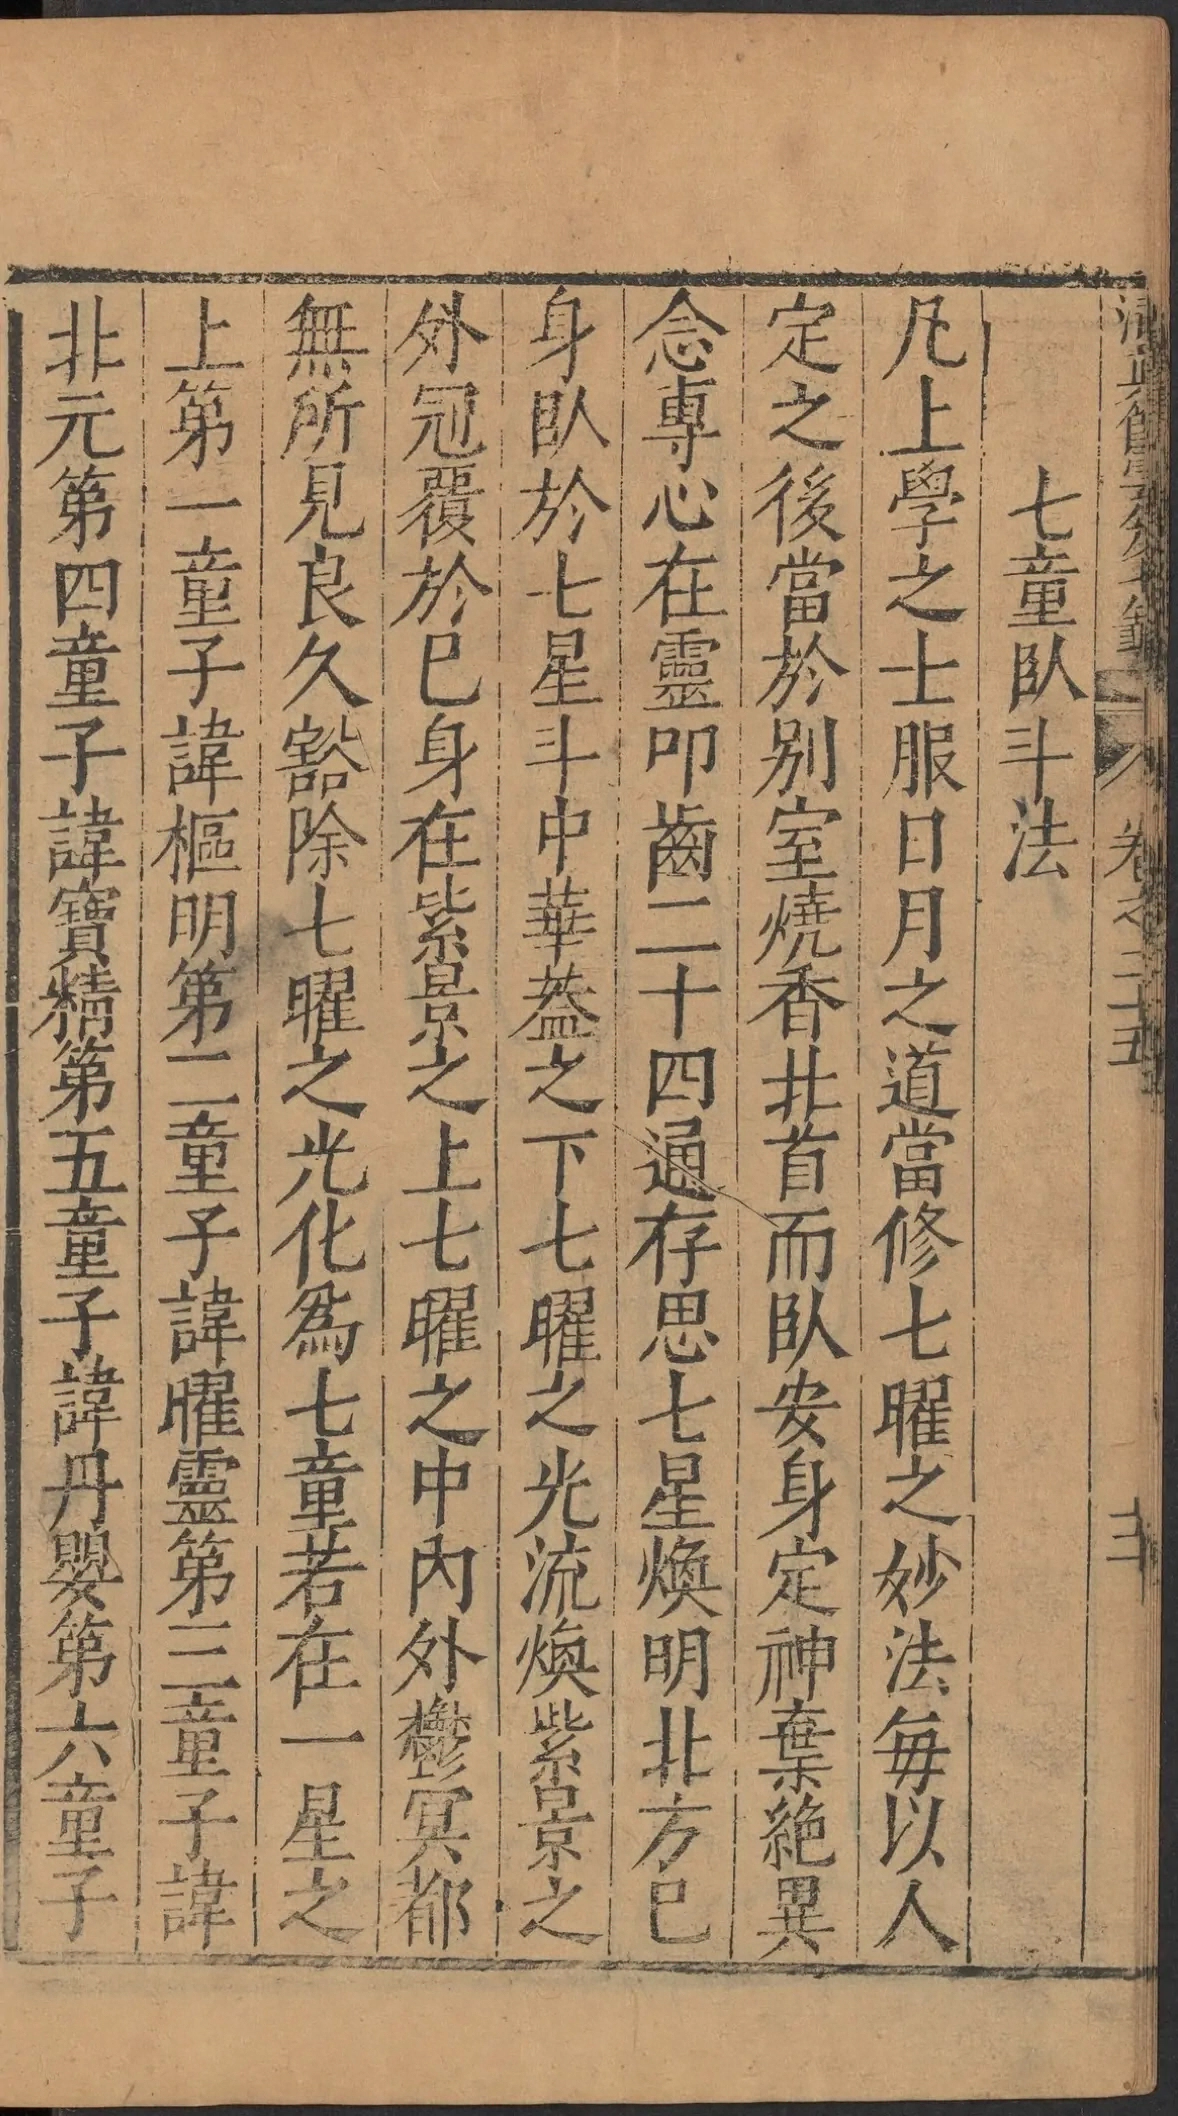 卷之二十五
七童臥斗法
凡上學之士服日月之道當修七曜之妙法每以人
定之後當於別室燒香北首而臥安身定神棄絶異
念專心在靈叩齒二十四通存思七星煥明北方巳
身臥於七星斗中華葢之下七曜之光流煥紫景之
外冠覆於巳身在紫景之上七曜之中內外鬱冥都
無所見良久豁除七曜之光化爲七童若在一星之
上第一童子諱樞明第二童子諱曜靈第三童子諱
北元第四童子諱寶精第五童子諱丹嬰第六童子